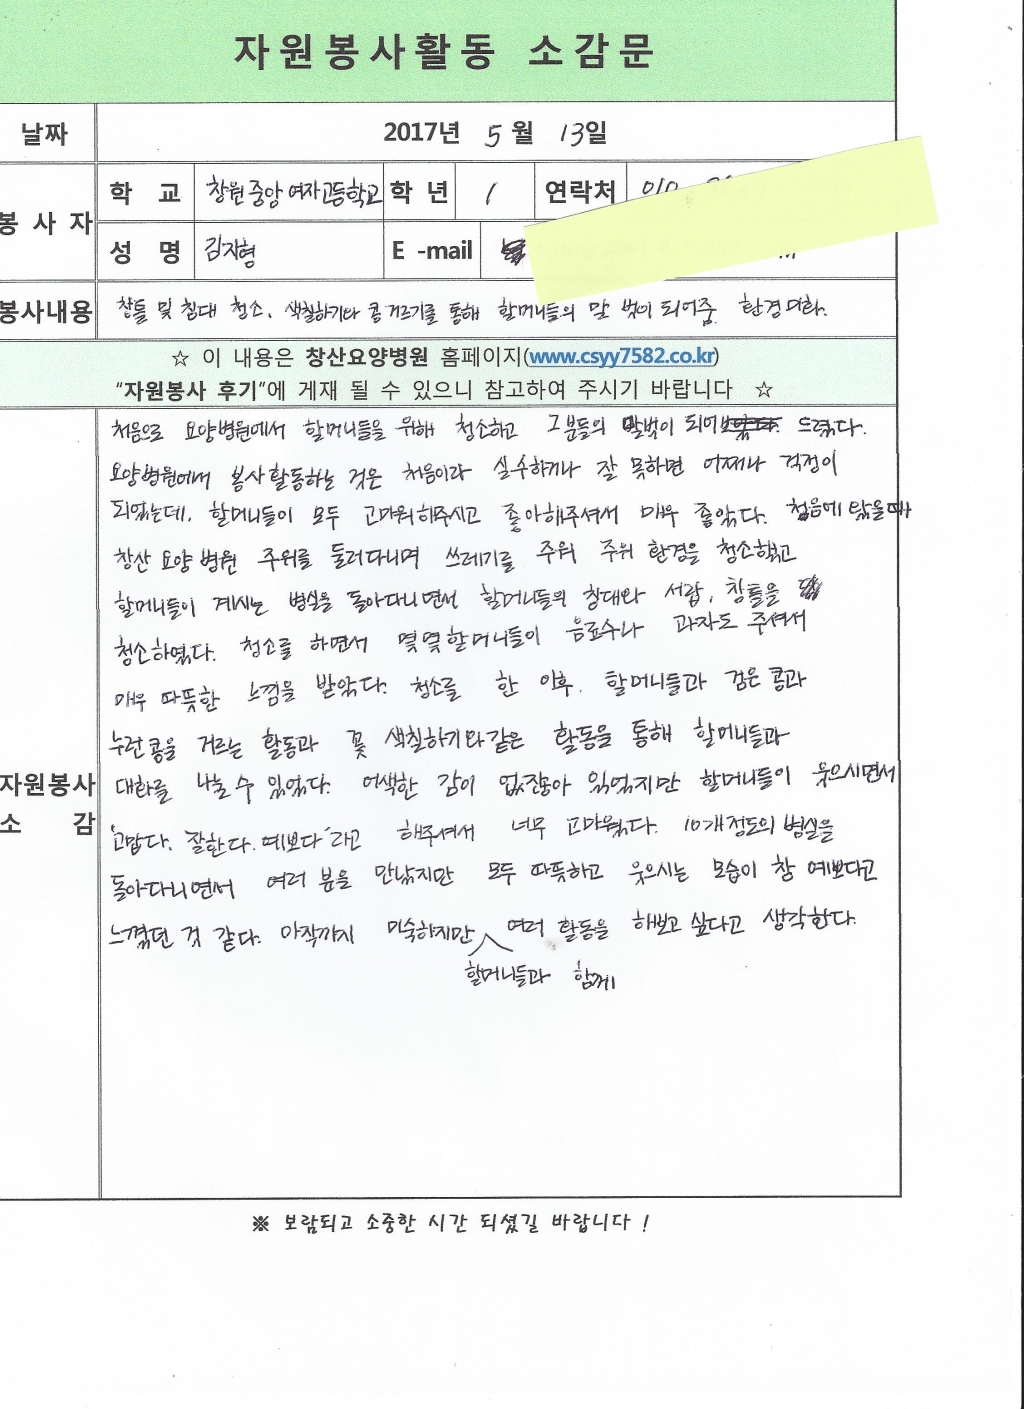 자원봉사활동 소감문
날짜 2017년 5월 13일
봉 사 자
학 교 창원중앙여자고등학교 학 년 1 연락처 010
성 명 김지형 E -mail
봉사내용 창틀 및 침대 청소, 색칠하기와 콩 거르기를 통해 할머니들의 말 벗이 되어줌. 환경미화.
☆ 이 내용은 창산요양병원 홈페이지(www.csyy7582.co.kr)
"자원봉사 후기"에 게재 될 수 있으니 참고하여 주시기 바랍니다 ☆
자원봉사
소 감
처음으로 요양병원에서 할머니들을 위해 청소하고 그분들의 말벗이 되어 드렸다.
요양병원에서 봉사활동하는 것은 처음이라 실수하거나 잘 못하면 어쩌나 걱정이
되었는데, 할머니들이 모두 고마워해주시고 좋아해주셔서 매우 좋았다. 첨음에 왔을때
창산 요양 병원 주위를 둘러다니며 쓰레기를 주워 주위 환경을 청소했고
할머니들이 계시는 병실을 돌아다니면서 할머니들의 침대와 서랍, 창틀을
청소하였다. 청소를 하면서 몇몇할머니들이 음료수나 과자도 주셔서
매우 따뜻한 느낌을 받았다. 청소를 한 이후, 할머니들과 검은 콩과
누런콩을 거르는 활동과 꽃 색칠하기와같은 활동을 통해 할머니들과
대화를 나눌 수 있었다. 어색한 감이 없잖아 있었지만 할머니들이 웃으시면서
"고맙다. 잘한다. 예쁘다"라고 해주셔서 너무 고마웠다. 10개정도의 병실을
돌아다니면서 여러 분을 만났지만 모두 따뜻하고 웃으시는 모습이 참 예쁘다고
느꼈던 것 같다. 아직까지 미숙하지만 여러 활동을 해보고 싶다고 생각한다.
할머니들과 함께
※ 보람되고 소중한 시간 되셨길 바랍니다 !